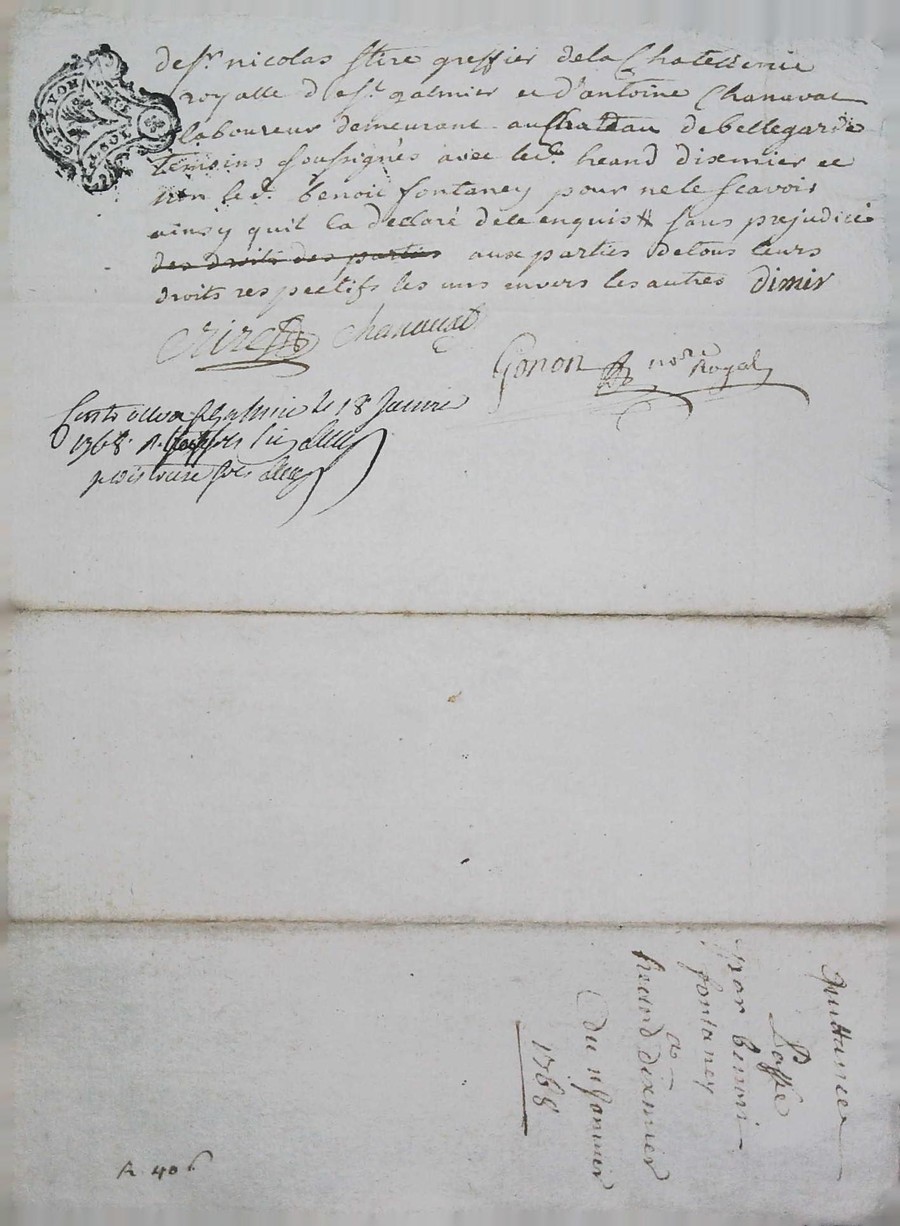 de sr. nicolas stire greffier de la Chatellenie
royalle de st. galmier et d'antoine Chanavat
laboureur demeurant au Chateau de bellegarde
temoins soussignés avec led. heand dixmier et
non led. benoit fontaney pour ne le scavoir
ainsy quil la declaré de ce enquis # sans prejudice
des droits des parties aux parties de tous leurs
droits respectifs les uns envers les autres dimir
Chanavat
Gonon nore. Royal
le 18 Janvier
1768
LYON
Quittance
Passée
par benoit
fontaney
a
heand dixmier
du 11 Janvier
1768